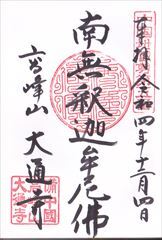 奉拝 令和四年十二月四日
南無釈迦牟尼佛
高峰山 大通寺
備中國
大通寺